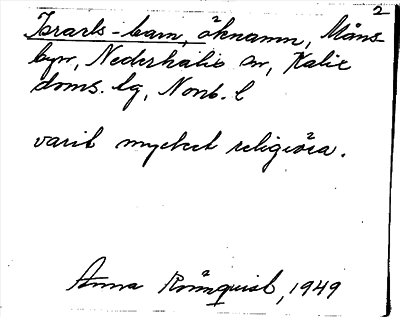 2
Israels-barn, öknamn, Måns-
byn, Nederkalix sn, Kalix
doms. lg, Nonb. l
varit mycket religiösa.
Anna Rönnquist, 1949